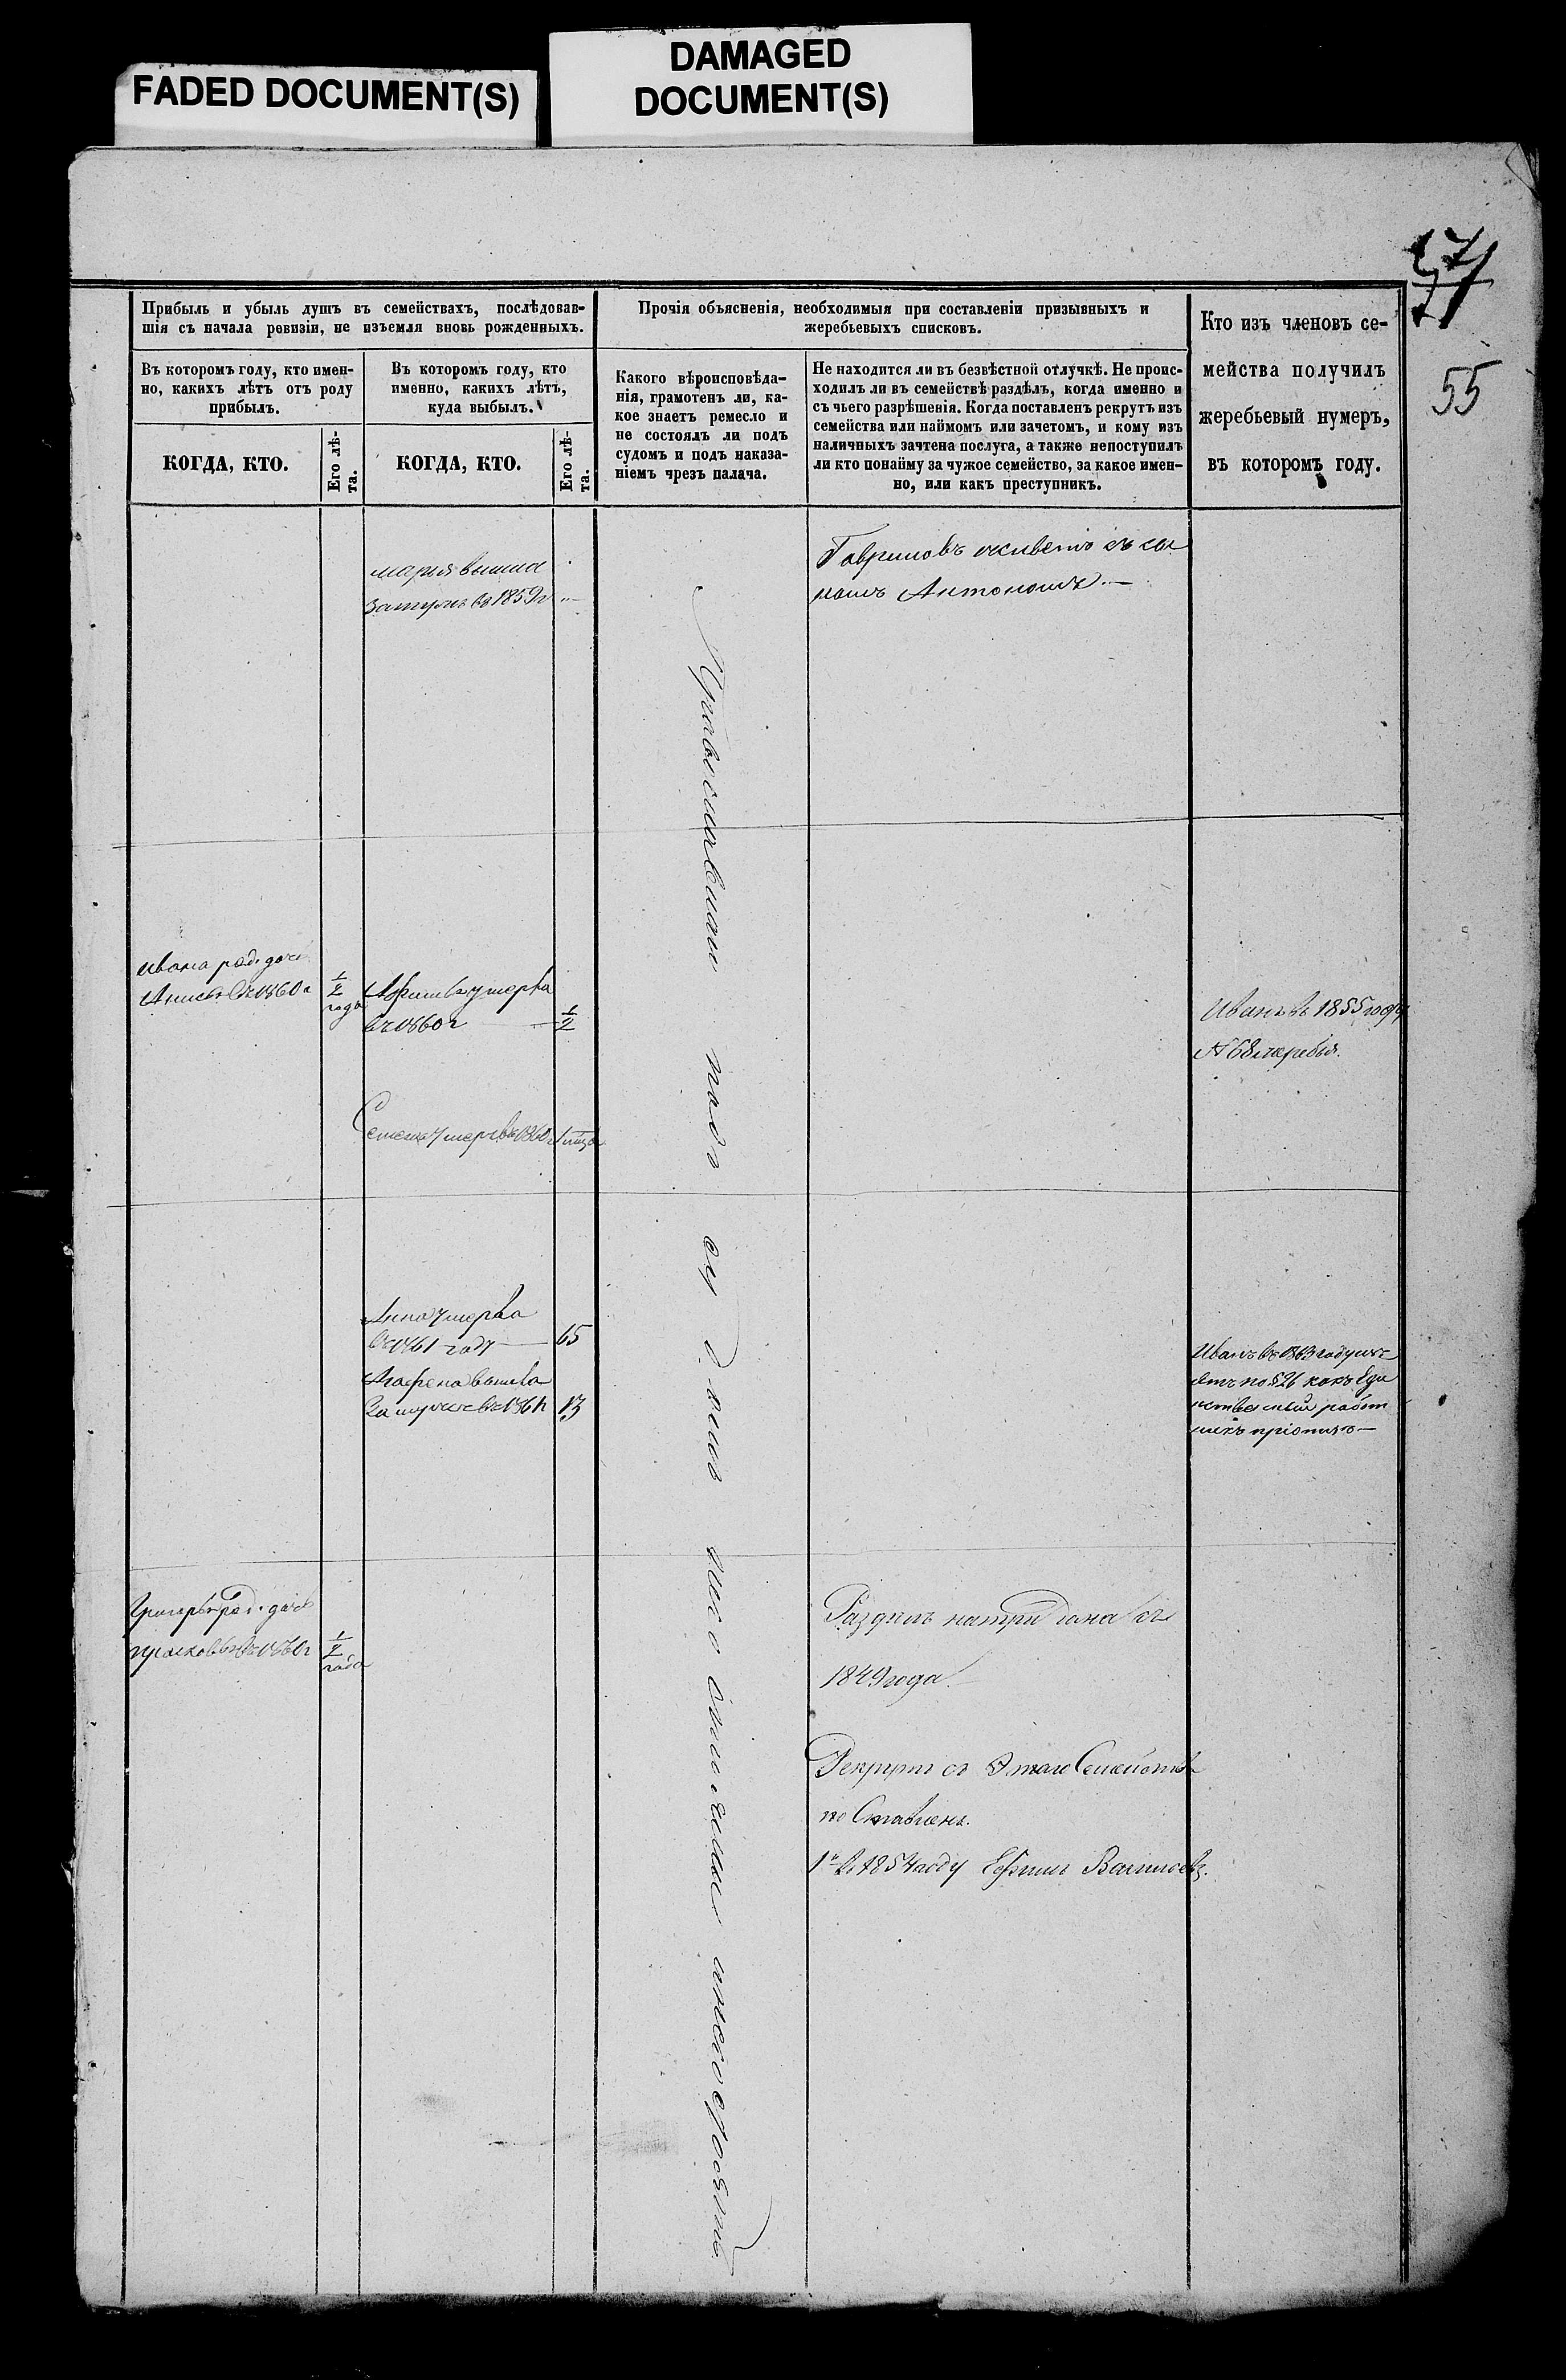 FADED DOCUMENT(S)
DAMAGED
DOCUMENT(S)
57
55
Прибыль и убыль душъ въ семействахъ, послѣдовав-
шія съ начала ревизіи, не изъемля вновь рожденныхъ.
Прочія объясненія, необходимыя при составленіи призывныхъ и
жеребьевыхъ списковъ.
Кто изъ членовъ се-
мейства получилъ
жеребьевый нумеръ,
въ которомъ году.
Въ которомъ году, кто имен-
но, какихъ лѣтъ отъ роду
прибылъ.
Въ которомъ году, кто
именно, какихъ лѣтъ,
куда выбылъ.
Какого вѣроисповѣда-
нія, грамотенъ ли, ка-
кое знаетъ ремесло и
не состоялъ ли подъ
судомъ и подъ наказа-
ніемъ чрезъ палача.
Не находится ли въ безвѣстной отлучкѣ. Не проис-
ходилъ ли въ семействѣ раздѣлъ, когда именно и
съ чьего разрѣшенія. Когда поставленъ рекрутъ изъ
семейства или наймомъ или зачетомъ, и кому изъ
наличныхъ зачтена послуга, а также непоступилъ
ли кто понайму за чужое семейство, за какое имен-
но, или какъ преступникъ.
КОГДА, КТО.
Его лѣ-
та.
КОГДА, КТО.
Его лѣ-
та.
марья вышла
замужъ въ 1859 г
Гавриловъ живетъ съ сы
номъ Антономъ
Ивана род. дочь
Анисья въ 1860 г
1/2
года
умерла
въ 1860 г
1/2
Иванъ въ 1855 году
№ 68 жеребья.
Семенъ умеръ въ 1860
Анна умерла
въ 1861 году
65
Аграфена вышла
замужъ въ 1861
13
Иванъ въ 1863 году
по § 26 какъ Еди
нственный работ
никъ
Григорья род. дочь
въ 1860 г
1/2
года
Раздѣлъ на три дома съ
1849 года.
Рекрутъ съ Этаго Семейства
по Ставленъ.
1й въ 1854 году Ефимъ
Православнаго подъ су домъ не